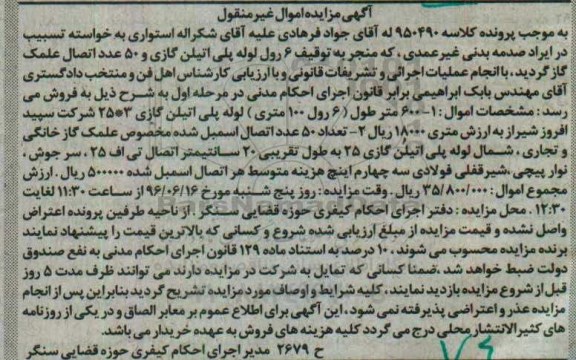 آگهی مزایده اموال غیرمنقول
به موجب پرونده کلاسه ۹۵۰۴۹۰ له آقای جواد فرهادی علیه آقای شکراله استواری به خواسته تسبیب
در ایراد صدمه بدنی غیرعمدی ، که منجر به توقیف ۶ رول لوله پلی اتیلن گازی و ۵۰ عدد اتصال علمک
گاز گردید، با انجام عملیات اجرائی و تشریفات قانونی و با ارزیابی کارشناس اهل فن و منتخب دادگستری
آقای مهندس بابک ابراهیمی برابر قانون اجرای احکام مدنی در مرحله اول به شرح ذیل به فروش می
رسد : مشخصات اموال : ۱- ۶۰۰ متر طول ( ۶ رول ۱۰۰ متری ) لوله پلی اتیلن گازی ۳*۲۵ شرکت سپید
افروز شیراز به ارزش متری ۱۸۰۰۰ ریال ۲- تعداد ۵۰ عدد اتصال اسمبل شده مخصوص علمک گاز خانگی
و تجاری ، شمال لوله پلی اتیلن گازی ۲۵ به طول تقریبی ۲۰ سانتیمتر اتصال تی اف ۲۵ ، سر جوش ،
نوار پیچی ،شیرقفلی فولادی سه چهارم اینچ هزینه متوسط هر اتصال اسمبل شده ۵۰۰۰۰۰ ریال . ارزش
مجموع اموال : ۳۵/۸۰۰/۰۰۰ ریال . وقت مزایده : روز پنج شنبه مورخ ۹۶/۰۶/۱۶ از ساعت ۱۱:۳۰ لغایت
۱۲:۳۰ . محل مزایده : دفتر اجرای احکام کیفری حوزه قضایی سنگر . از ناحیه طرفین پرونده اعتراض
واصل نشده و قیمت مزایده از مبلغ ارزیابی شده شروع و کسانی که بالاترین قیمت را پیشنهاد نمایند
برنده مزایده محسوب می شوند . ۱۰ درصد به استناد ماده ۱۲۹ قانون اجرای احکام مدنی به نفع صندوق
دولت ضبط خواهد شد .ضمنا کسانی که تمایل به شرکت در مزایده دارند می توانند ظرف مدت ۵ روز
قبل از شروع مزایده بازدید نمایند، کلیه شرایط و اوصاف مورد مزایده تشریح گردید بنابراین پس از انجام
مزایده عذر و اعتراضی پذیرفته نمی شود . این آگهی برای اطلاع عموم بر معابر الصاق و در یکی از روزنامه
های کثیرالانتشار محلی درج می گردد کلیه هزینه های فروش به عهده خریدار می باشد.
ح ۲۶۷۹ مدیر اجرای احکام کیفری حوزه قضایی سنگر